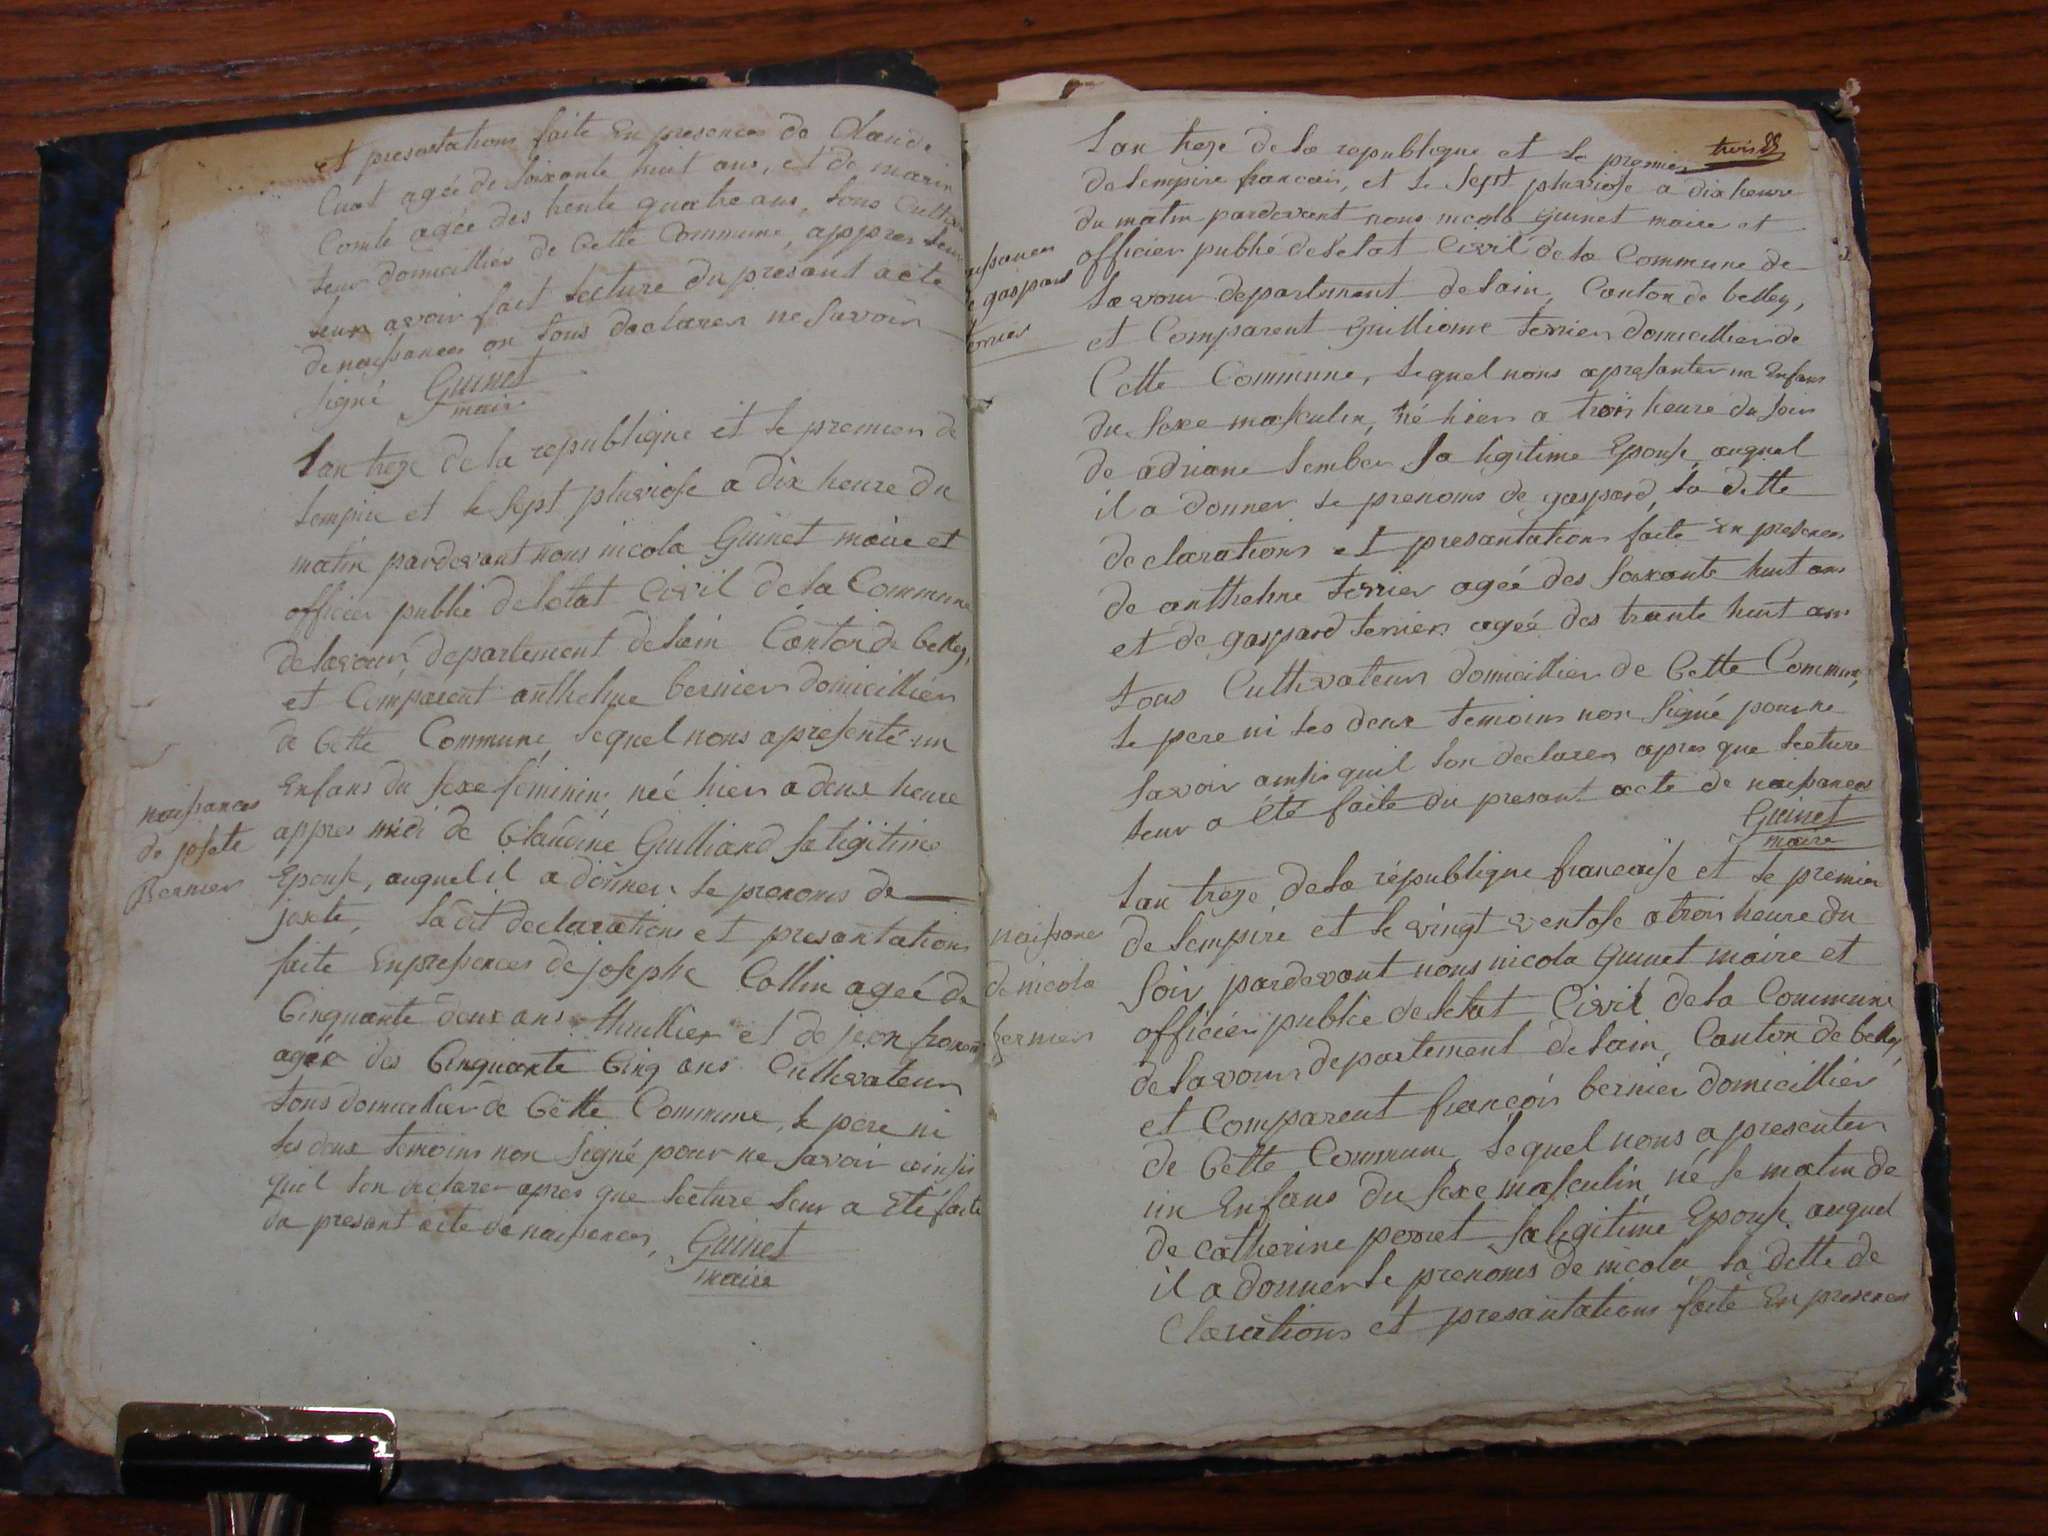 et presantations faite En presences de Claude
Cuat agée de soixante huit ans, et de marin
Comte agée des trente quatre ans, tous Cultiva
teur domicillier de Cette Commune, appres leur
leur avoir fait lecture du presant acte
de naissances on tous declarer ne savoir
signé Guinet
maire
Lan treze de la republique et le premier de
lempire et le sept pluviose a dix heure du
matin pardevant nous nicola Guinet maire et
officier publié deletat Civil de la Commune
delavour, departement delain Canton de belley,
et Comparent anthelme bernier domicillier
de Cette Commune, lequel nous apresenté un
Enfans du sexe féminin, néé hier a deux heure
appres midi de Claudine Guilliand sa ligitime
Epouse, auquel il a donner le prenoms de
josete, la dit declarations et presantations
faite Enpresences de josephe Collin ageé de
Cinquante deux ans thuillier et de jean
ageé des Cinquante Cinq ans Cultivateur
tous domicillier de Cette Commune, le pere ni
les deux temoins non signé pour ne savoir ainsis
quil lon declarer apres que lecture leur a Eté faite
du presant acte de naissences, Guinet
maire
naissances
de josete
Bernier
trois
Lan treze de la republique et le premier
delempire francais, et le sept pluviose a dix heure
du matin pardevant nous nicola guinet maire et
officier publié deletat Civil de la Commune de
lavour departement delain, Canton de belley,
et Comparent Guilliome terrier domicillier de
Cette Commune, lequel nous apresanter un Enfans
du sexe masculin, né hier a trois heure du soir
de adriane lember sa ligitime Epouse, auquel
il a donner le prenoms de gaspard, la dette
declarations et presantations faite En presences
de anthelme terrier ageé des soixante huit ans
et de gaspard terrier ageé des trante huit ans
tous Cultivateur domicillier de Cette Commune,
le pere ni les deux temoins non signé pour ne
savoir ainsis quil lon declarer apres que lecture
leur a Eté faite du presant acte de naissances
Guinet
maire
naissances
de gaspard
terrier
Lan treze de la république francaise et le premier
de lempire et le vingt ventose a trois heure du
soir pardevant nous nicola Guinet maire et
officier publié deletat Civil de la Commune
delavour departement delain, Canton de belley,
et Comparent françois bernier domicillier
de Cette Commune, lequel nous apresenter
un Enfans du sexe masculin, né le matin de
de catherine perret sa ligitime Epouse, auquel
il a donner le prenoms de nicola la dette de
Clarations et presantations faite En presences
naissances
de nicola
bernier